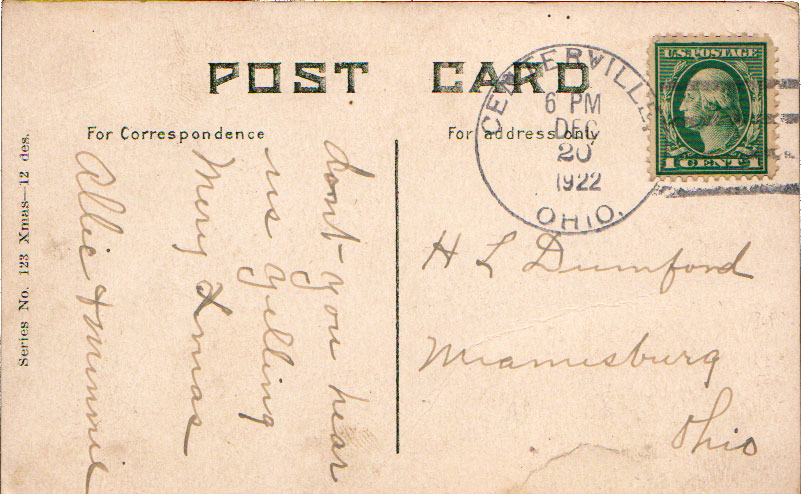 POST CARD
For Correspondence
For address only
CENTERVILLE,
6 PM
DEC
20
1922
OHIO.
U.S. POSTAGE
1 CENT 1
Series No. 123 Xmas—12 des.
dont you hear
us yelling
Merry Xmas
Allie & Minnie
H L Dumford
Miamesburg
Ohio